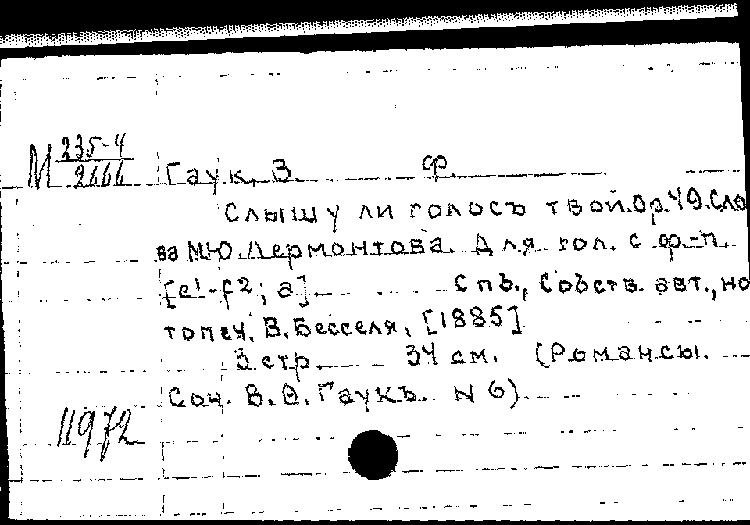 М 235-4/2666
Гаук, В. Ф.
Слышу ли голосъ твой. Ор. 49. Сло
ва М.Ю. Лермонтова. Для гол. с ф-п.
[e1-f2; a] Спб., Собств. авт., но
топеч. В. Бесселя, [1885]
3 стр. 34 см. (Романсы.
Соч. В.Ѳ. Гаукъ. N 6)
11972